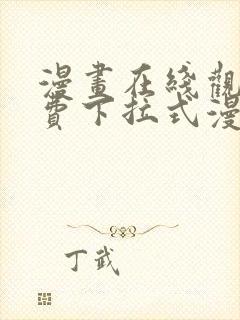 漫畫在綫觀
費下拉式漫
丁武